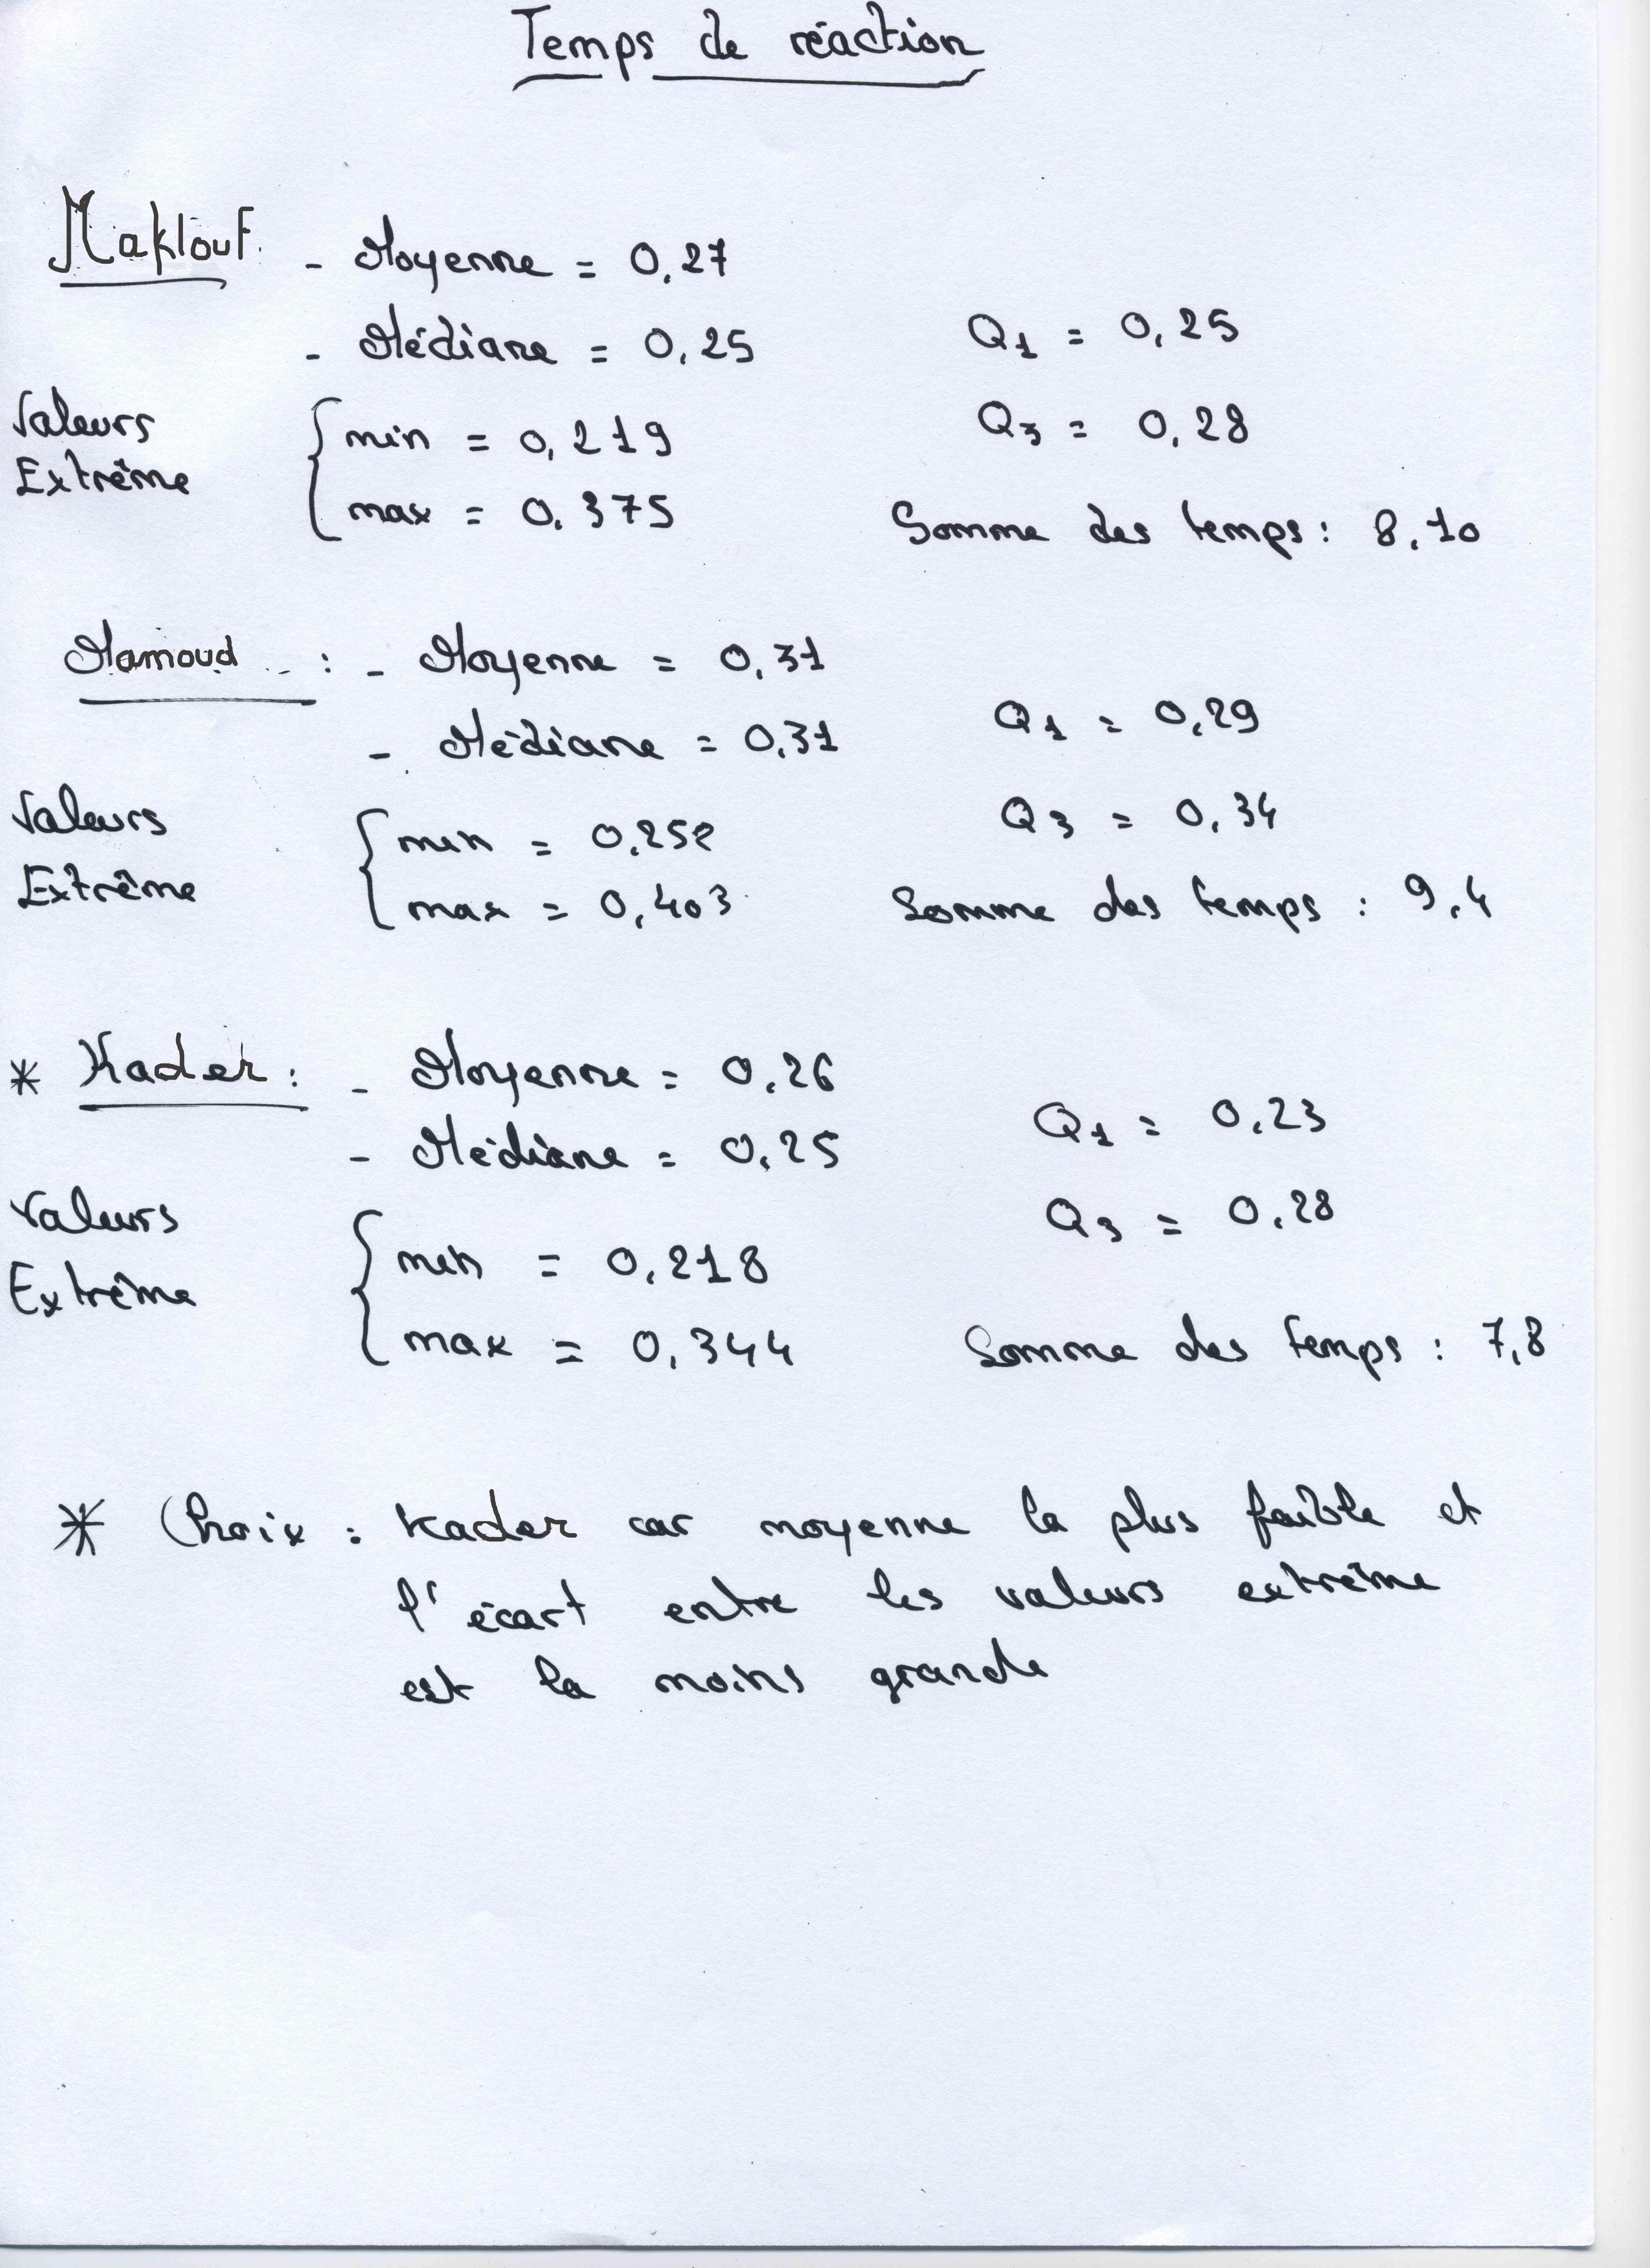 Temps de réaction
Maklouf - Moyenne = 0,27
- Médiane = 0,25 Q1 = 0,25
Valeurs Extrême { min = 0,219 Q3 = 0,28
max = 0,375 Somme des temps : 8,10
Mamoud : - Moyenne = 0,31
- Médiane = 0,31 Q1 = 0,29
Valeurs Extrême { min = 0,252 Q3 = 0,34
max = 0,403 Somme des temps : 9,4
* Kader : - Moyenne = 0,26
- Médiane = 0,25 Q1 = 0,23
Valeurs Extrême { min = 0,218 Q3 = 0,28
max = 0,344 Somme des temps : 7,8
* Choix : Kader car moyenne la plus faible et
l'écart entre les valeurs extrême
est la moins grande